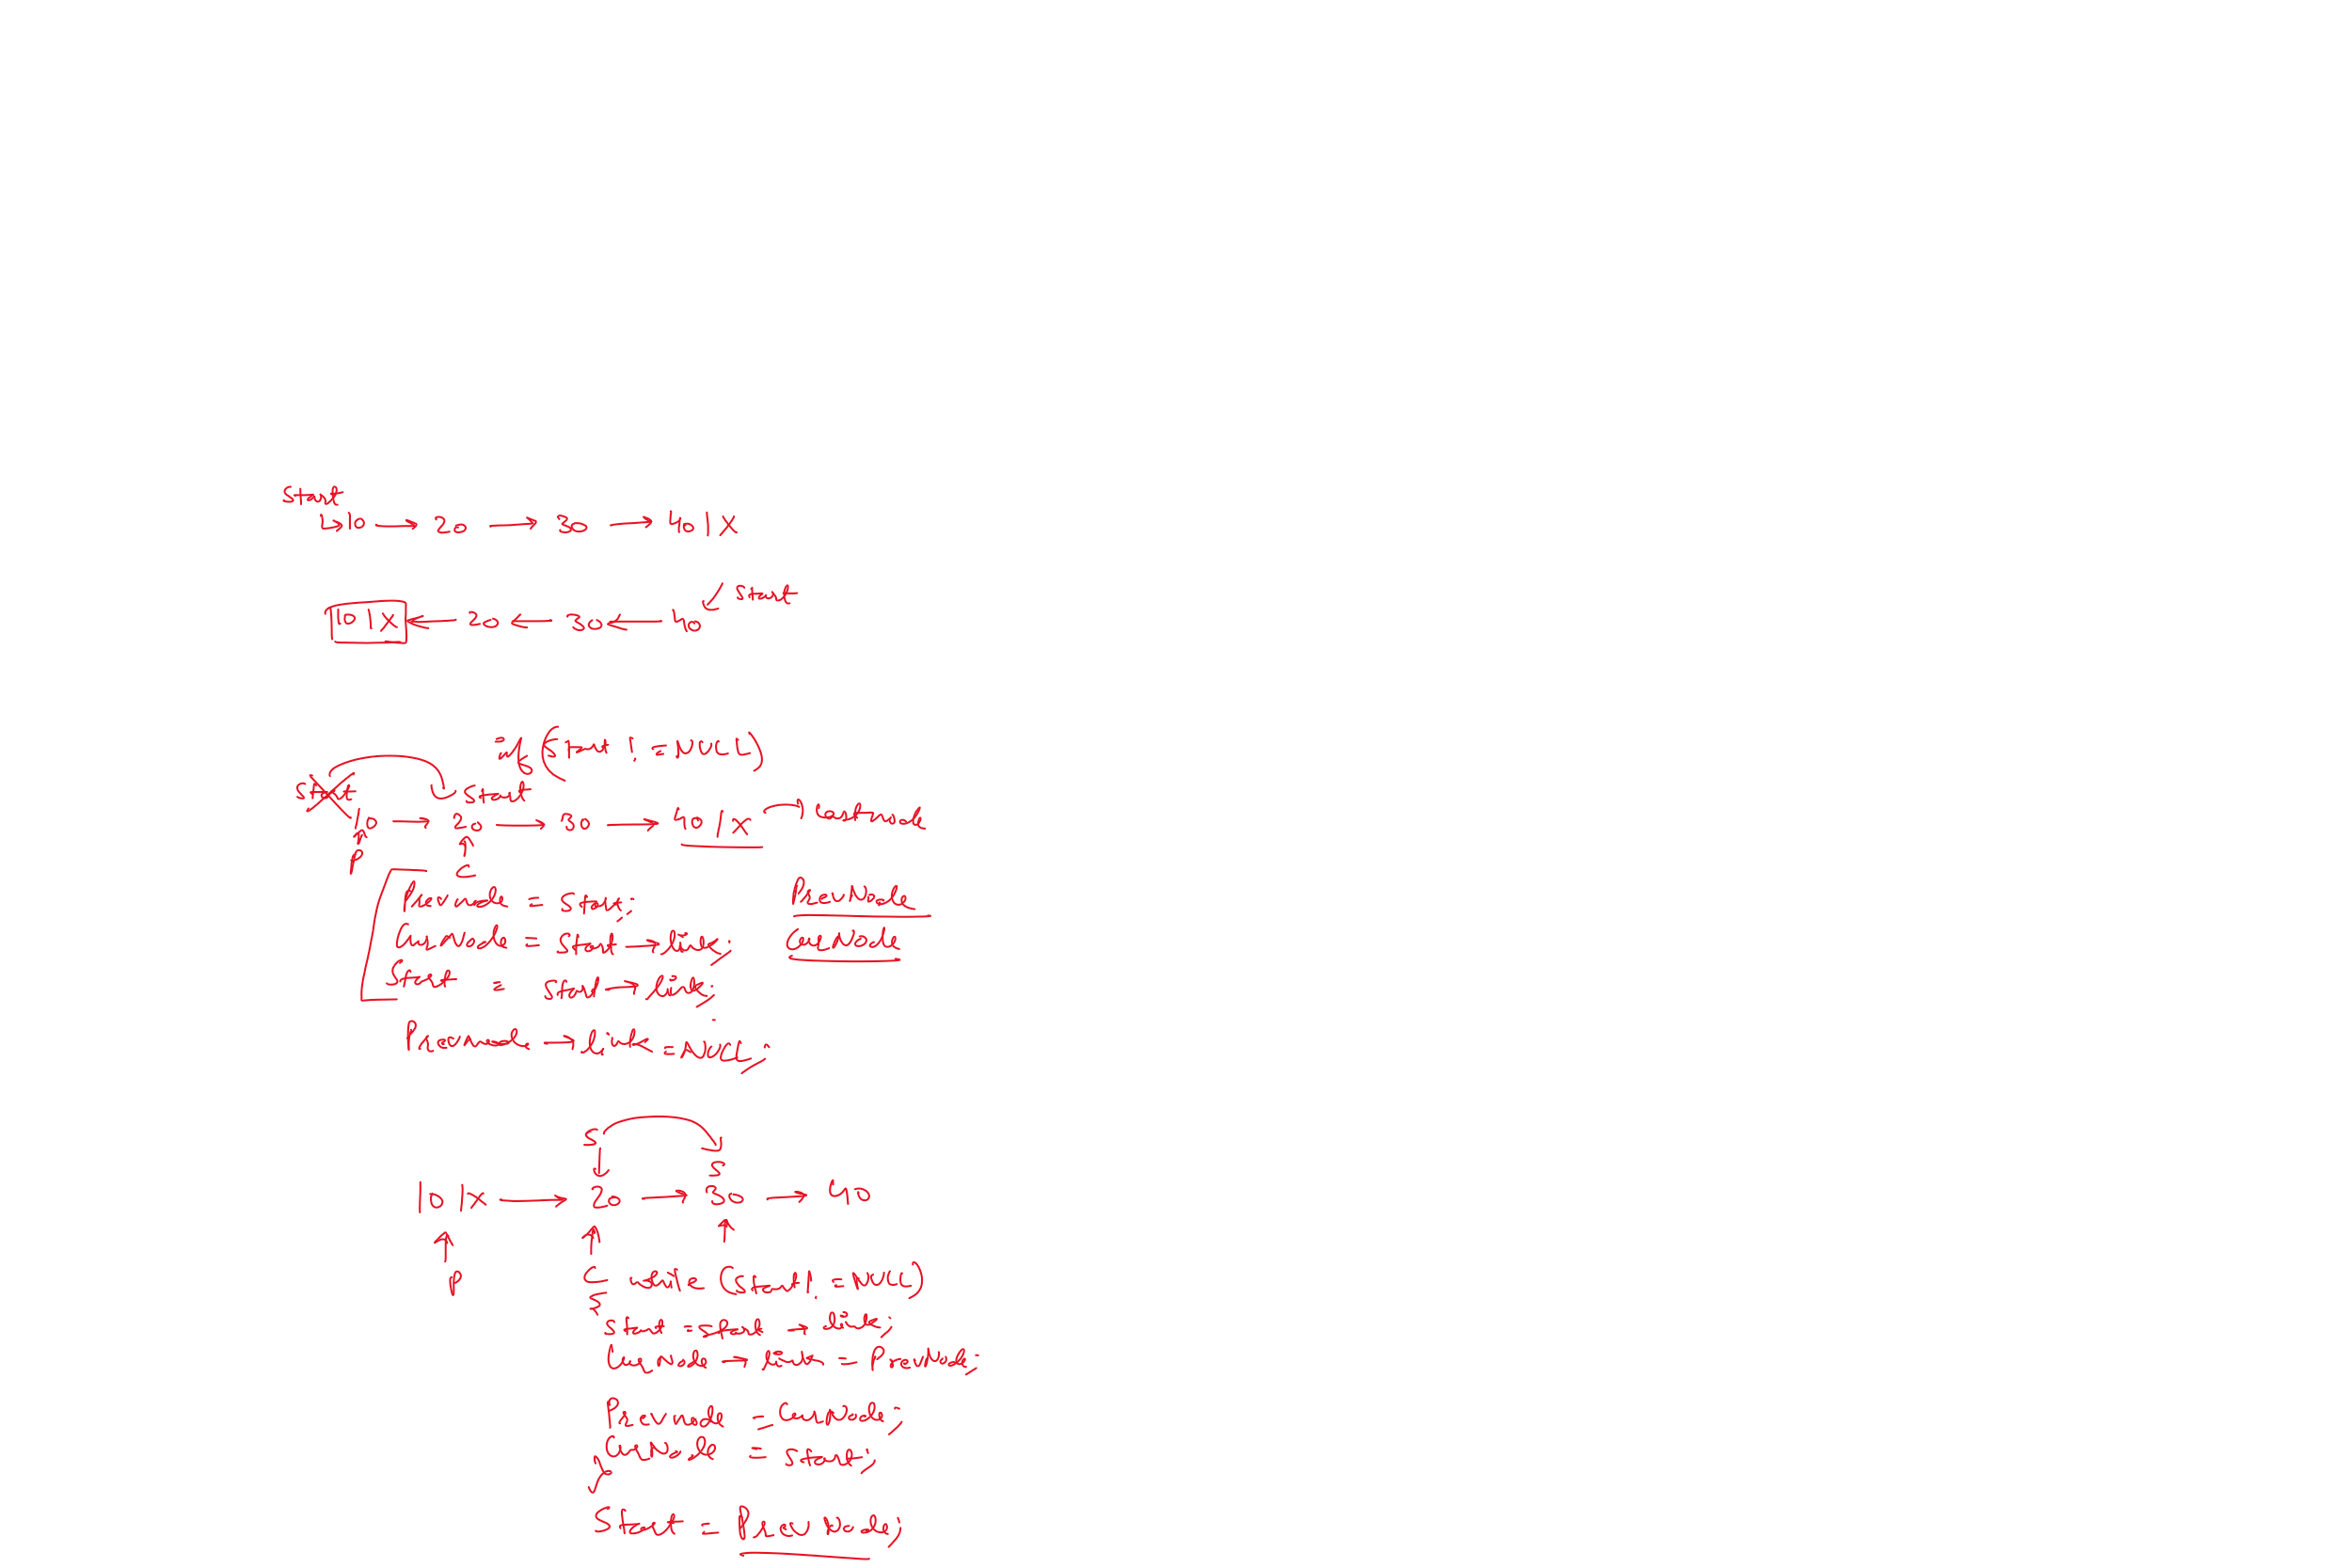 Start
↳10 → 20 → 30 → 40 | X
Start
10 | X ← 20 ← 30 ← 40
if (Start != NULL)
Start Start
10 → 20 → 30 → 40 | X Lastnode
P C
Prevnode = Start; PrevNode
CurrNode = Start → link; CurrNode
Start = Start → link;
Prevnode → link = NULL;
S
S
10 | X → 20 → 30 → 40
P C while (Start != NULL)
{
Start = Start → link;
CurrNode → link = PrevNode;
Prevnode = CurrNode;
CurrNode = Start;
}
Start = PrevNode;